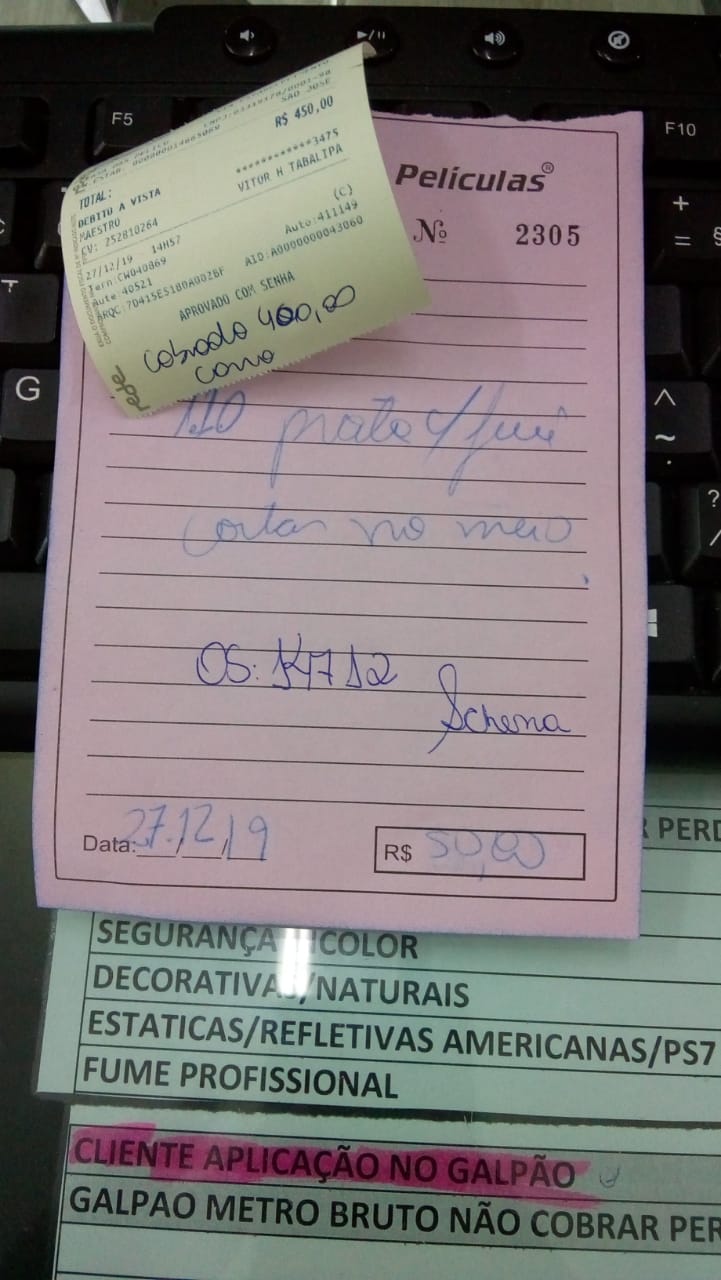 F5
F10
SAO JOSE
R$ 450,00
TOTAL:
************3475
DEBITO A VISTA
VITOR H TABALIPA
MAESTRO
CV: 252810264
(C)
27/12/19 14H57
Auto:411149
Term:CW040869
Aute 40521
AID:A0000000043060
APROVADO COM SENHA
cobrado 400,00
carro
rede
Películas®
Nº 2305
G
cortar no meio
OS: 14712
Schena
Data: 27.12/19
R$ 50,00
R PERD
SEGURANÇA
COLOR
DECORATIVAS/NATURAIS
ESTATICAS/REFLETIVAS AMERICANAS/PS7
FUME PROFISSIONAL
CLIENTE APLICAÇÃO NO GALPÃO
GALPAO METRO BRUTO NÃO COBRAR PER